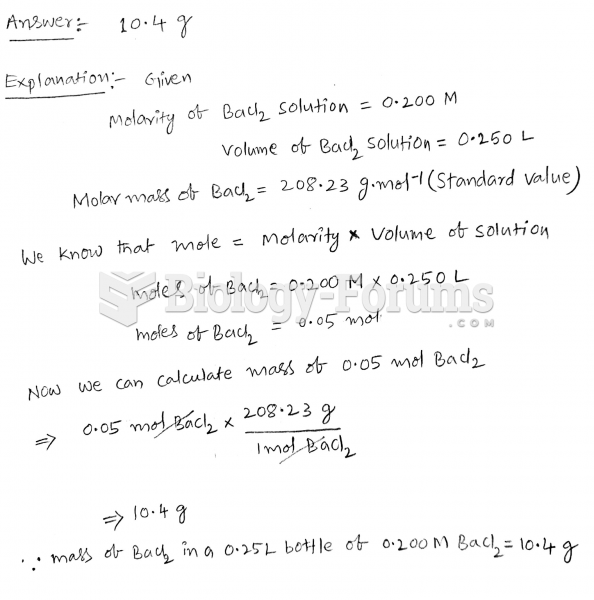 Answer:- 10.4 g
Explanation:- Given
Molarity of BaCl2 solution = 0.200 M
Volume of BaCl2 solution = 0.250 L
Molar mass of BaCl2 = 208.23 g.mol-1 (Standard value)
We know that mole = Molarity × Volume of solution
moles of BaCl2 = 0.200 M × 0.250 L
Biology-Forums
.COM
moles of BaCl2 = 0.05 mol
Now we can calculate mass of 0.05 mol BaCl2
⇒ 0.05 mol BaCl2 × 208.23 g
1 mol BaCl2
⇒ 10.4 g
∴ mass of BaCl2 in a 0.25L bottle of 0.200 M BaCl2 = 10.4 g